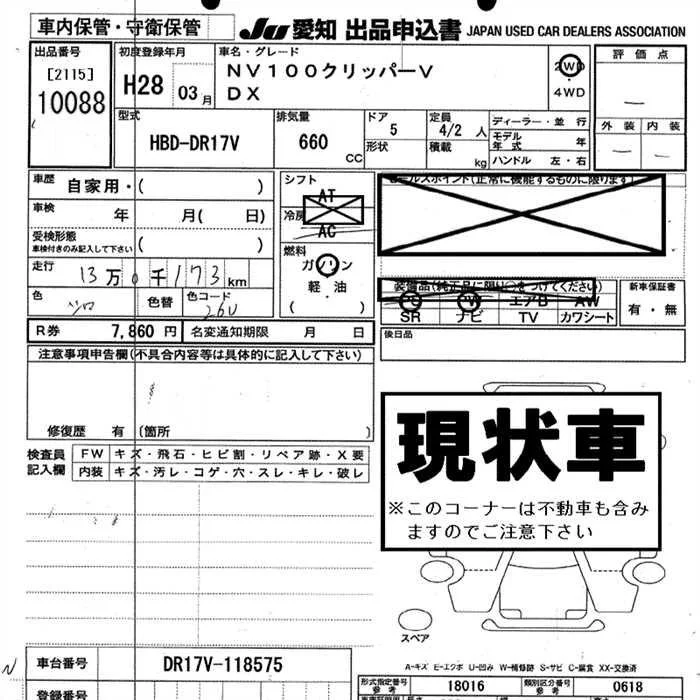 車内保管・守衛保管
JU 愛知 出品申込書 JAPAN USED CAR DEALERS ASSOCIATION
出品番号
[2115]
10088
初度登録年月
H28 03月
車名・グレード
NV100クリッパーV
DX
2WD
・
4WD
評価点
—
外装 内装
— —
型式
HBD-DR17V
排気量
660
CC
ドア
5
形状
定員
4/2 人
積載
kg
ディーラー・並行
モデル年式 年
ハンドル 左・右
車歴 自家用・( )
車検 年 月( 日)
受検形態
車検付きのみ記入して下さい ( )
走行 13万0千173km
色 色替 色コード
26U
シフト
AT
冷房
AC
燃料
ガソリン
軽油
( )
セールスポイント(正常に機能するものに限ります)
装備品(純正品に限り○をつけてください)
PS PW エアB AW
SR ナビ TV カワシート
新車保証書
有・無
後日品
R券 7,860円 名変通知期限 月 日
注意事項申告欄(不具合内容等は具体的に記入して下さい)
修復歴 有 (箇所 )
検査員
記入欄
FW キズ・飛石・ヒビ割・リペア跡・X要
内装 キズ・汚レ・コゲ・穴・スレ・キレ・破レ
現状車
※このコーナーは不動車も含み
ますのでご注意下さい
スペア
A-キズ E-エクボ U-凹み W-補修跡 S-サビ C-腐食 XX-交換済
N
車台番号 DR17V-118575
登録番号
型式指定番号
参考
18016
類別区分番号
参考
0618